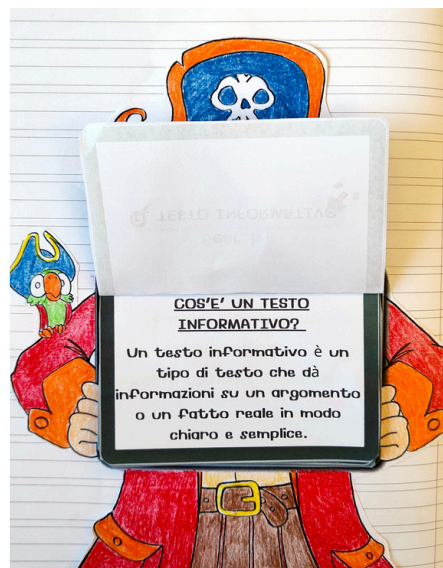 COS'E' UN TESTO
INFORMATIVO?
Un testo informativo è un
tipo di testo che dà
informazioni su un argomento
o un fatto reale in modo
chiaro e semplice.